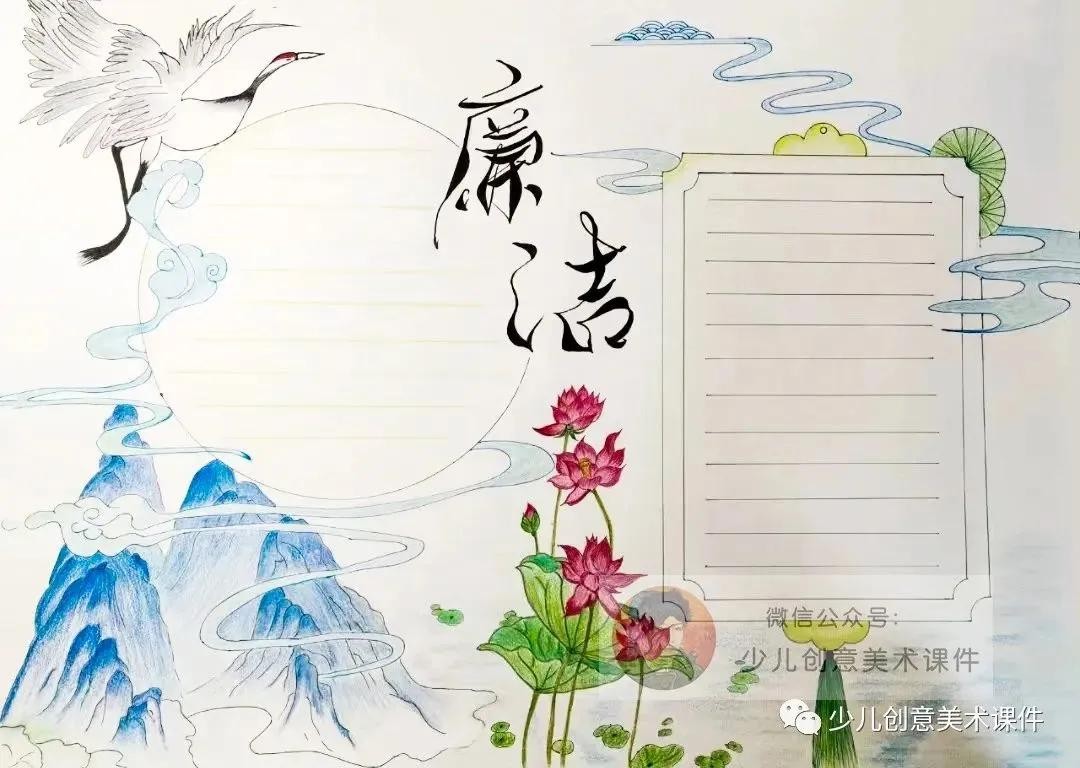 廉
洁
微信公众号:
少儿创意美术课件
少儿创意美术课件